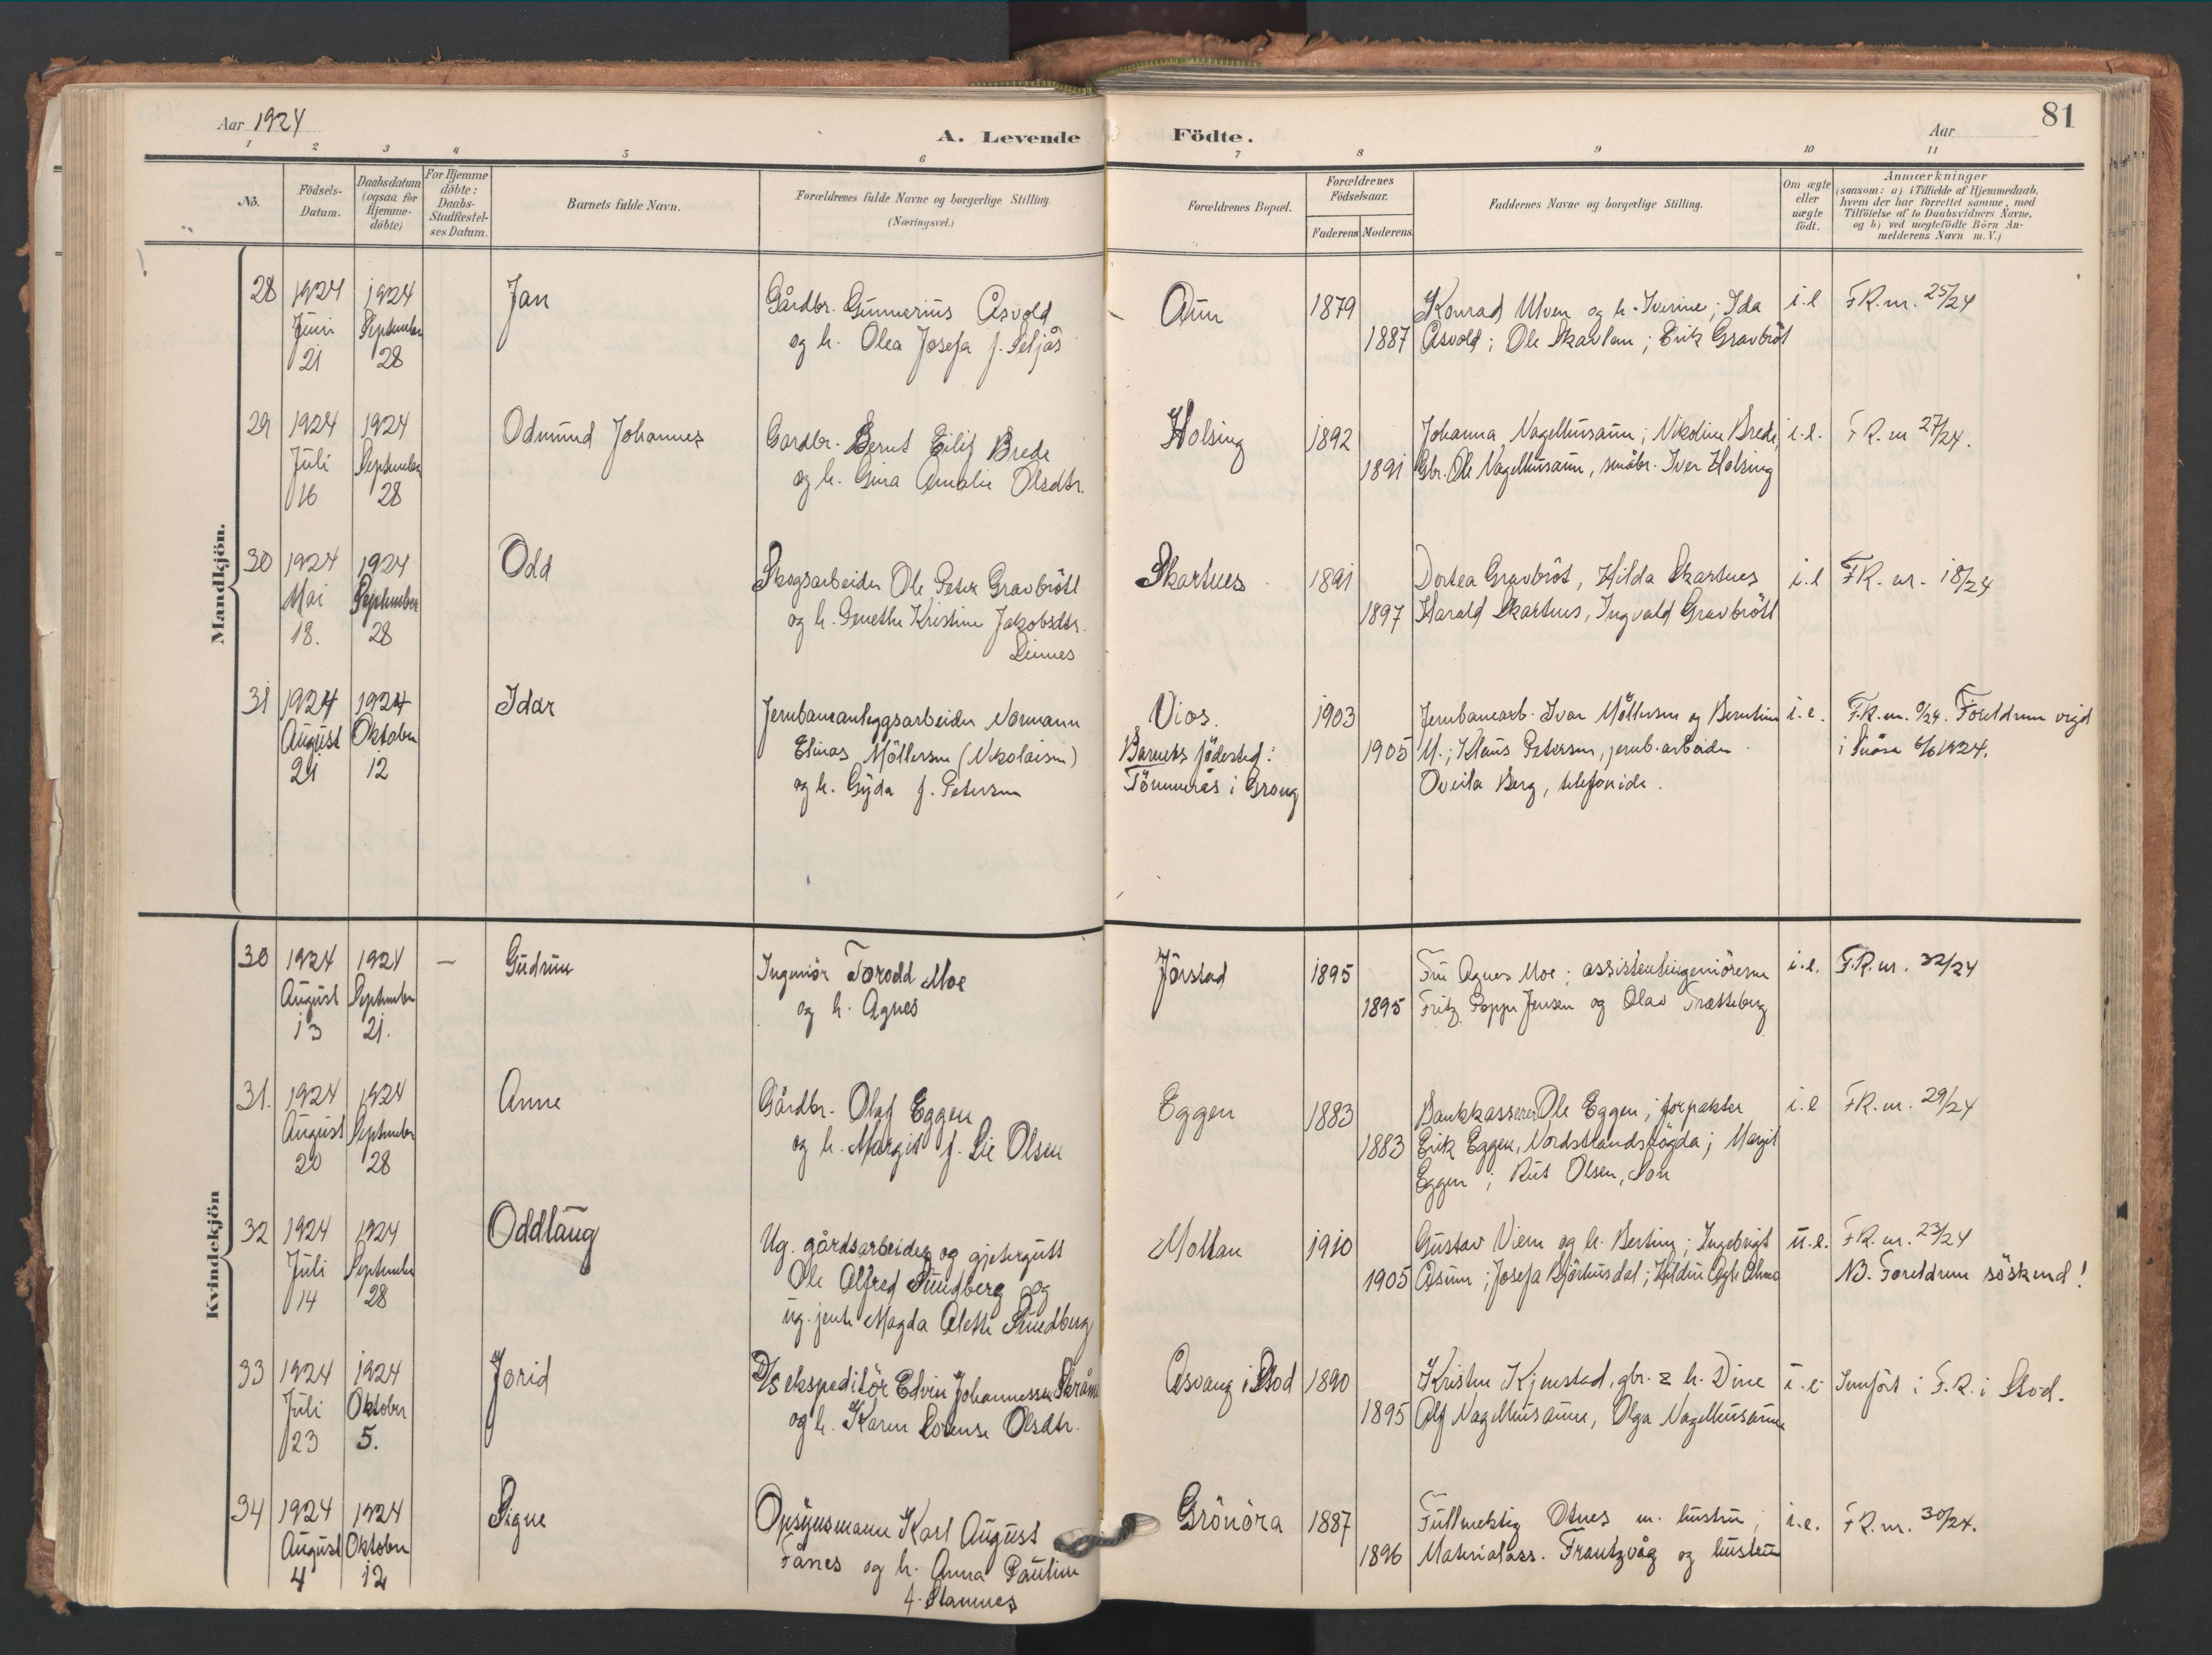 Aar 1924
A. Levende Födte.
Aar
81
1 2 3 4 5 6 7 8 9 10 11
No.
Födsels-Datum.
Daabsdatum (ogsaa for Hjemme-döbte)
For Hjemme döbte: Daabs-Stadfæstel-ses Datum.
Barnets fulde Navn.
Forældrenes fulde Navne og borgerlige Stilling.
(Næringsvei.)
Forældrenes Bopæl.
Forældrenes Födselsaar.
Faderens Moderens
Faddernes Navne og borgerlige Stilling.
Om ægte eller uægte födt.
Anmærkninger
(saasom: a) i Tilfælde af Hjemmedaab, hvem der har forrettet samme, med Tilföielse af to Daabsvidners Navne. og b) ved uægtefödte Börn An-melderens Navn m. V.)
Mandkjön.
28 1924 Juni 21 1924 September 28
Jan
Gårdbr. Gunnerius Åsvold
og h. Olea Josefa f. Seljås
Aun
1879
1887
Konrad Ulven og h. Iverine; Ida
Åsvold; Ole Skavlan; Erik Gravbröt
i.e
F.R. nr. 25/24
29 1924 Juli 16 1924 September 28
Odmund Johannes
Gardbr. Bernt Eilif Brede
og h. Gina Amalie Olsdtr.
Holsing
1892
1891
Johanna Nagelhusaun; Nikoline Brede,
Gbr. Ole Nagelhusaun, småbr. Iver Holsing
i.e.
F.R. nr 27/24.
30 1924 Mai 18. 1924 September 28
Odd
Skogsarbeider Ole Peter Gravbrött
og h. Kristine Jakobsdtr.
Skartnes
1891
1897
Dortea Gravbröt, Hilda Skartnes
Harald Skartnes, Ingvald Gravbrött
i.e
F.R. nr. 18/24
31 1924 August 21 1924 Oktober 12
Idar
Jernbaneanleggsarbeider Normann
Elinas Möllersen (Nikolaisen)
og h. Gyda f. Petersen
Vios.
Barnets födested:
Tömmerås i Grong
1903
1905
Jernbanearb. Ivar Möllersen og Berntine
M.; Klaus Petersen, jernb. arbeider
Berg, telefonide.
i.e.
F.R. nr. /24. Foreldrene vigd
i Snåsa 6/6 1924.
Kvindekjön
30 1924 August 13 1924 September 21.
—
Gudrun
Ingeniör Torodd Moe
og h. Agnes
Jörstad
1895
1895
Fru Agnes Moe; assistentingeniörerne
Fritz Poppe Jensen og Olav Trætteberg
i.e.
F.R. nr. 32/24
31. 1924 August 20 1924 September 28
Anne
Gårdbr. Olaf Eggen
og h. Margit f. Lie Olsen
Eggen
1883
1883
Bankkasserer Ole Eggen; forpakter
Erik Eggen, Nordstrandshögda; Margit
Eggen; Rut Olsen, Son
i.e
F.R. nr. 29/24
32 1924 Juli 14 1924 September 28
Oddlaug
Ug. gårdsarbeider og gjetergutt
Ole Alfred Sundberg og
ug. jente Magda Alette Sundberg
Moltan
1910
1905
Gustav Viem og h. Bertine; Ingebrigt
Åsum; Josefa Bjørhusdal; Hildur Agle
u.e.
F.R. nr. 23/24
NB. Foreldrene söskend!
33 1924 Juli 23 1924 Oktober 5.
Jorid
D/s ekspeditör Edvin Johannessen
og h. Karen Lorense Olsdtr.
Åsvang i Stod
1890
1895
Kristen Kjenstad, gbr. & h. Dine
Alf Nagelhusaune, Olga Nagelhusaune
i.e
Innfört i F.R. i Stod.
34 1924 August 4 1924 Oktober 12
Signe
Opsynsmann Karl August
Fånes og h. Anna Pauline
f. Stamnes
Grönöra
1887
1896
Fullmektig Otnes m. hustru;
Materialass. Frantzvåg og hustru
i.e.
F.R. nr. 30/24.